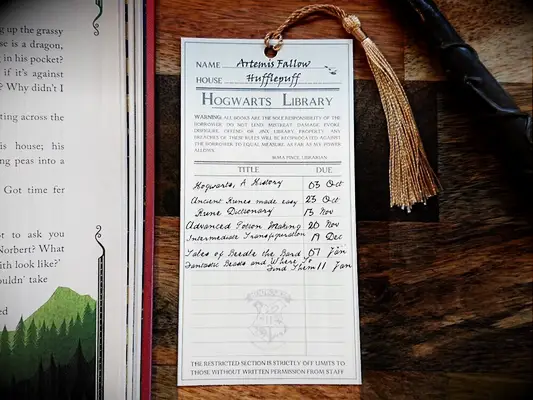 up the grassy
is a dragon,
in his pocket?
if it's against
? Why didn't I
across the
his house; his
peas into a
Got time fer
to ask you
Norbert? What
look like?'
take
NAME Artemis Fallow
HOUSE Hufflepuff
HOGWARTS LIBRARY
WARNING: ALL BOOKS ARE THE SOLE RESPONSIBILITY OF THE
BORROWER. DO NOT LEND, MISTREAT, DAMAGE, EVOKE,
DISFIGURE, OFFEND OR JINX LIBRARY PROPERTY. ANY
BREACHES OF THESE RULES WILL BE RECIPROCATED AGAINST
THE BORROWER TO EQUAL MEASURE AS FAR AS MY POWER
ALLOWS.
IRMA PINCE, LIBRARIAN
TITLE DUE
Hogwarts, A History 03 Oct
Ancient Runes made easy 23 Oct
Rune Dictionary 13 Nov
Advanced Potion Making 20 Nov
Intermediate Transfiguration 19 Dec
Tales of Beedle the Bard 07 Jan
Fantastic Beasts and Where To
Find Them 11 Jan
THE RESTRICTED SECTION IS STRICTLY OFF LIMITS TO
THOSE WITHOUT WRITTEN PERMISSION FROM STAFF